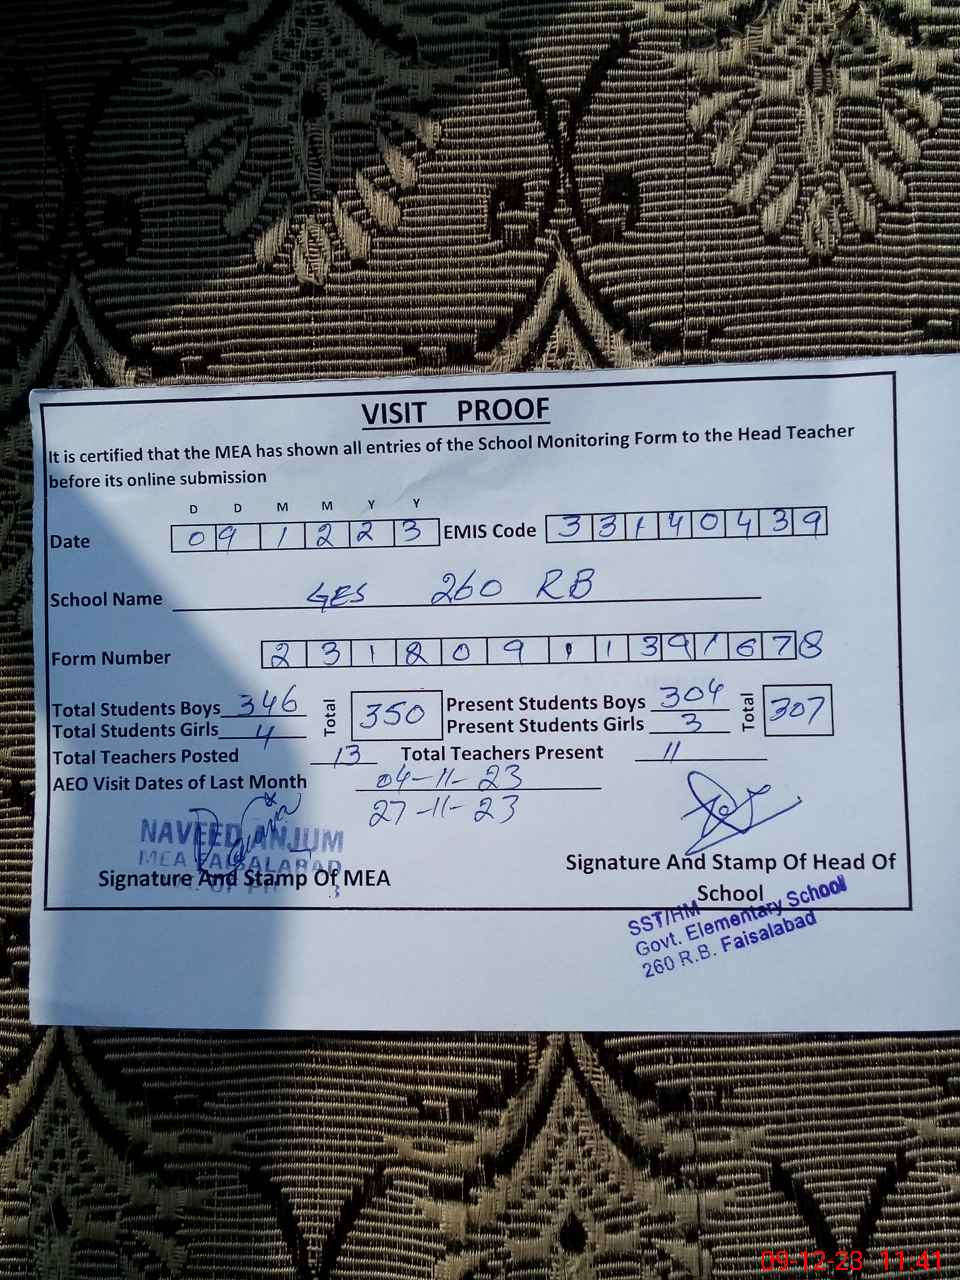 VISIT PROOF
It is certified that the MEA has shown all entries of the School Monitoring Form to the Head Teacher
before its online submission
D D M M Y Y
Date 09 12 23 EMIS Code 33140439
School Name GES 260 RB
Form Number 23120911391678
Total Students Boys 346 Total 350 Present Students Boys 304 Total 307
Total Students Girls 4 Present Students Girls 3
Total Teachers Posted 13 Total Teachers Present 11
AEO Visit Dates of Last Month 04-11-23
27-11-23
NAVEED ANJUM
MEA FAISALABAD
Signature And Stamp Of MEA
Signature And Stamp Of Head Of
School
SST/HM
Govt. Elementary School
260 R.B. Faisalabad
09-12-23 11:41